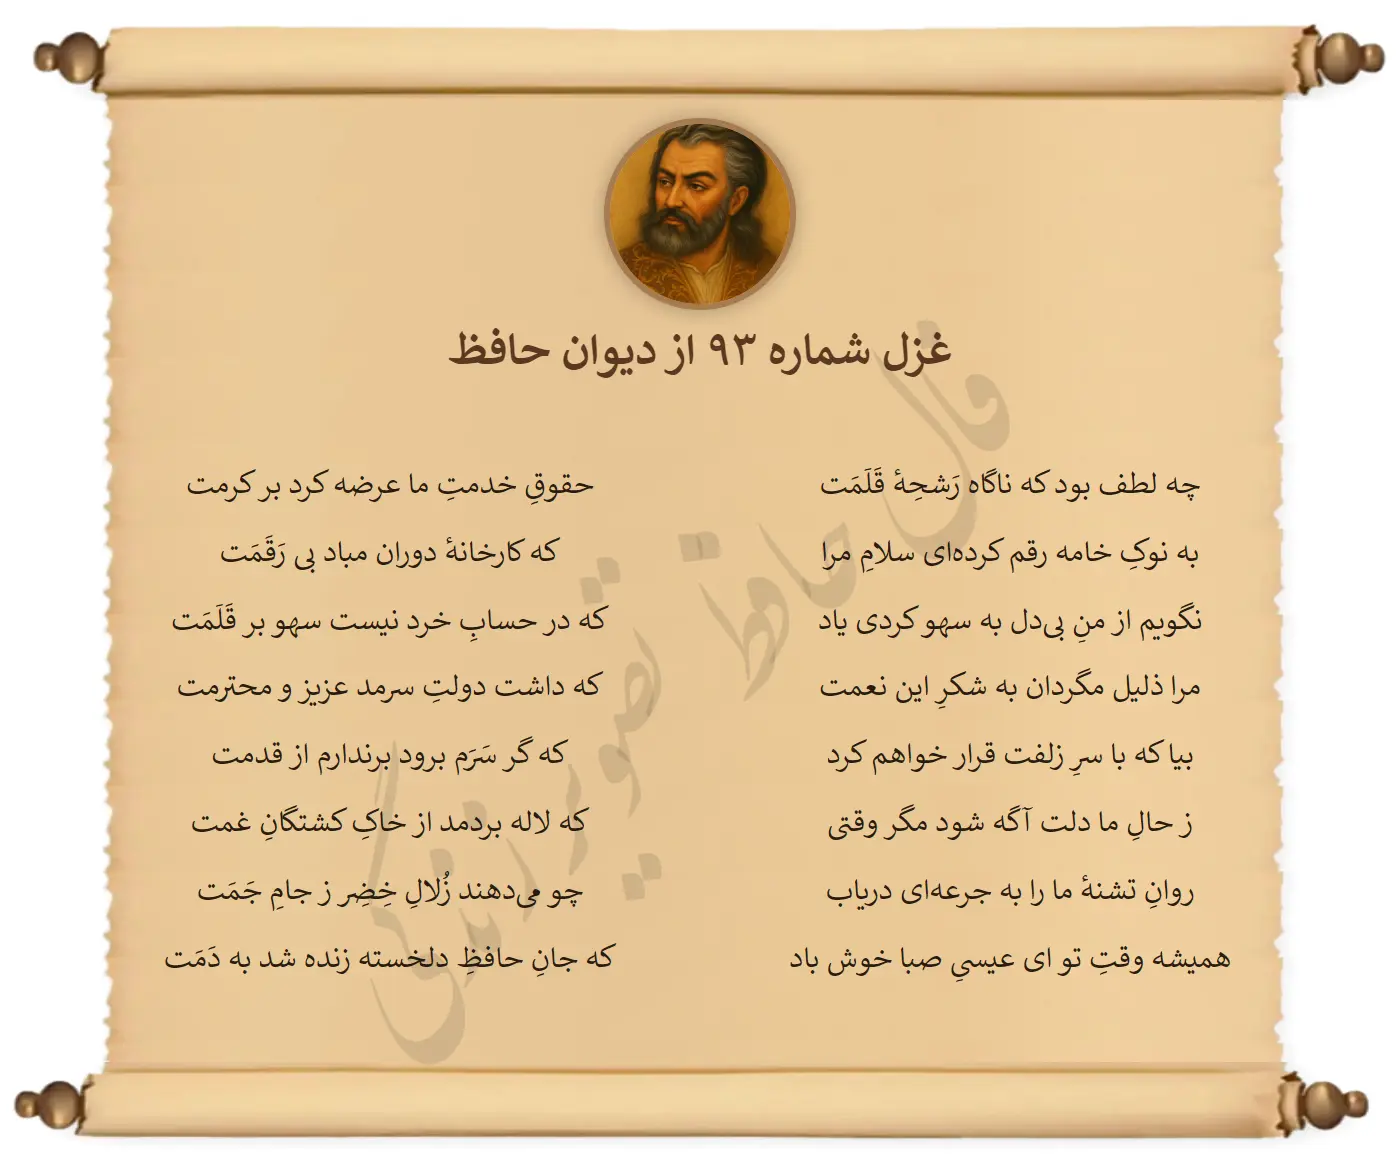 غزل شماره ۹۳ از دیوان حافظ
چه لطف بود که ناگاه رَشحِهٔ قَلَمَت
حقوقِ خدمتِ ما عرضه کرد بر کرمت
به نوکِ خامه رقم کرده‌ای سلامِ مرا
که کارخانهٔ دوران مباد بی رَقَمَت
نگویم از منِ بی‌دل به سهو کردی یاد
که در حسابِ خرد نیست سهو بر قَلَمَت
مرا ذلیل مگردان به شکرِ این نعمت
که داشت دولتِ سرمد عزیز و محترمت
بیا که با سرِ زلفت قرار خواهم کرد
که گر سَرَم برود برندارم از قدمت
ز حالِ ما دلت آگه شود مگر وقتی
که لاله بردمد از خاکِ کشتگانِ غمت
روانِ تشنهٔ ما را به جرعه‌ای دریاب
چو می‌دهند زُلالِ خِضِر ز جامِ جَمَت
همیشه وقتِ تو ای عیسیِ صبا خوش باد
که جانِ حافظِ دلخسته زنده شد به دَمَت
فال حافظ تصویر زندگی